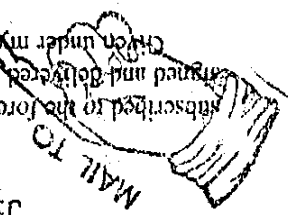 MAIL TO
subscribed to the fore
signed and delivered
Given under my